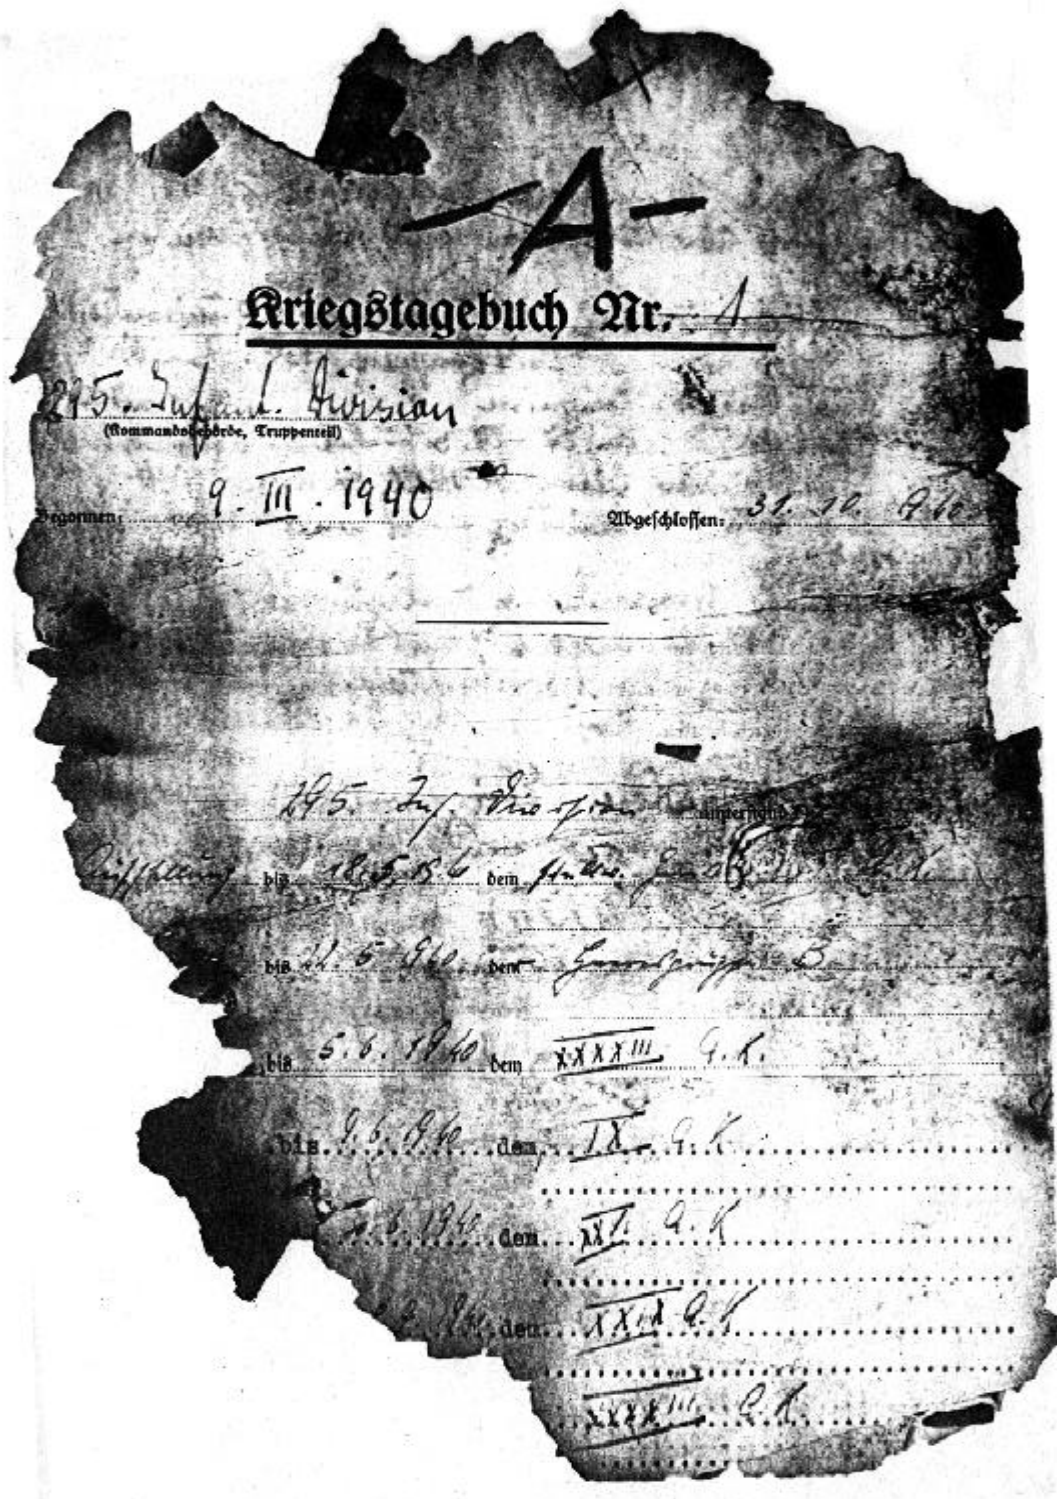 -A-
Kriegstagebuch Nr. 1
295. Infant. Division
(Kommandobehörde, Truppenteil)
Begonnen: 9. III. 1940 Abgeschlossen: 31. 10. 1940
295. Inf. Division
Aufstellung bis 18.5. dem
bis 22 5 1940 dem Heeresgruppe B
bis 5. 6. 1940 dem XXXXIII A. K.
bis 9. 6. 1940 dem IX A. K.
6. 1940 dem XXI. A. K
dem XXIX A. K
XXXXIII A. K.